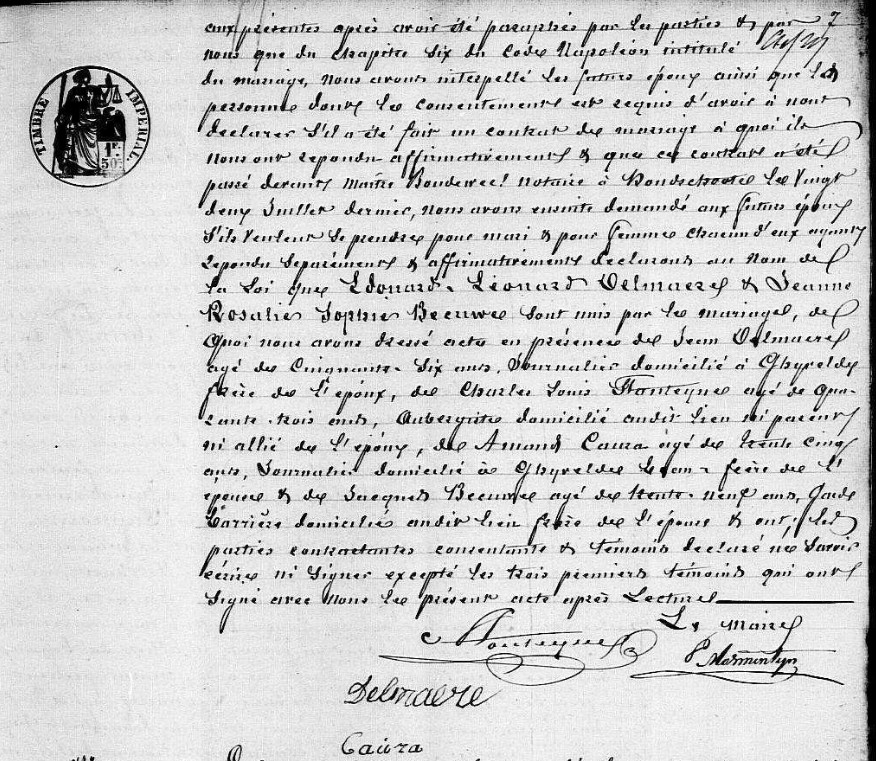 aux présentes après avoir été paraphés par les parties & par 7
nous que du chapitre Six du Code Napoléon intitulé
du mariage, nous avons interpellé les futurs époux ainsi que la
personne dont le consentement est requis d'avoir à nous
déclarer S'il a été fait un contrat de mariage à quoi ils
nous ont repondu affirmativement & que ce contrat a été
passé devant Maître Boudewel notaire à Hondschoote le Vingt
deux Juillet dernier, nous avons ensuite demandé aux futurs époux
S'ils Veulent Se prendre pour mari & pour femme chacun d'eux ayant
repondu Séparément & affirmativement declarons au nom de
la Loi que Edouard-Léonard Delmaere & Jeanne
Rosalie Sophie Beeuwe sont unis par le mariage, de
Quoi nous avons dressé acte en présence de Jean Delmaere
agé de Cinquante-Six ans, Journalier domicilié à Ghyvelde
frère de l'époux, de Charles Louis Honteyne agé de qua-
rante-trois ans, Aubergiste domicilié audit lieu ni parent
ni allié de l'époux, de Amand Caura agé de trente cinq
ans, Journalier domicilié à Ghyvelde beau-frère de l'
épouse & de Jacques Beeuwe agé de trente-neuf ans, Garde
barrière domicilié audit lieu frère de l'épouse & ont, les
parties contractantes consentante & témoins declaré ne Savoir
écrire ni Signer excepté les trois premiers témoins qui ont
Signé avec Nous le présent acte après Lecture
Le Maire
Honteyne
Delmaere
Caüra
TIMBRE IMPERIAL
1F. 50c.